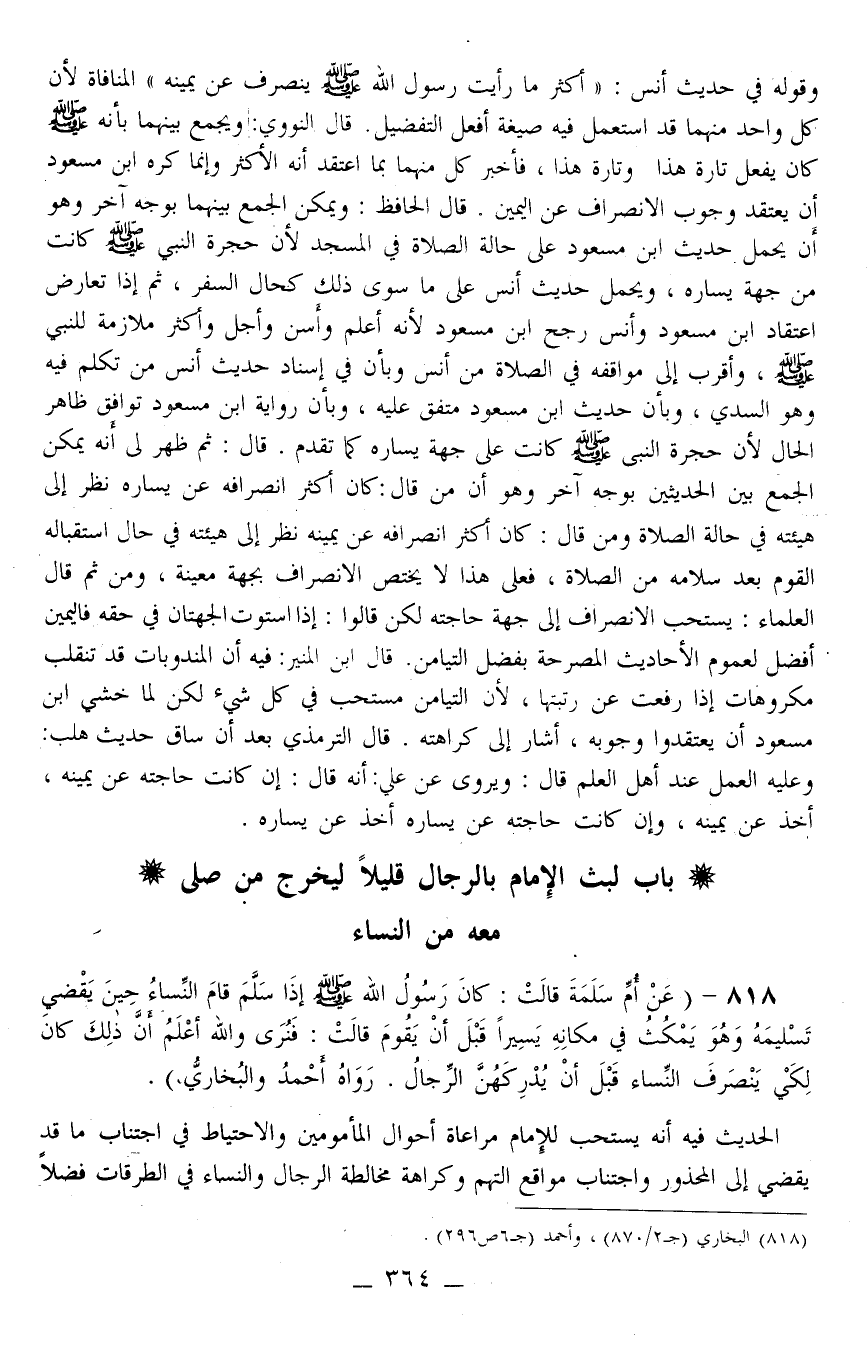 وقوله في حديث أنس : « أكثر ما رأيت رسول الله ﷺ ينصرف عن يمينه » المنافاة لأن
كل واحد منهما قد استعمل فيه صيغة أفعل التفضيل. قال النووي: ويجمع بينهما بأنه ﷺ
كان يفعل تارة هذا وتارة هذا ، فأخبر كل منهما بما اعتقد أنه الأكثر وإنما كره ابن مسعود
أن يعتقد وجوب الانصراف عن اليمين . قال الحافظ : ويمكن الجمع بينهما بوجه آخر وهو
أن يحمل حديث ابن مسعود على حالة الصلاة في المسجد لأن حجرة النبي ﷺ كانت
من جهة يساره ، ويحمل حديث أنس على ما سوى ذلك كحال السفر ، ثم إذا تعارض
اعتقاد ابن مسعود وأنس رجح ابن مسعود لأنه أعلم وأسن وأجل وأكثر ملازمة للنبي
ﷺ ، وأقرب إلى مواقفه في الصلاة من أنس وبأن في إسناد حديث أنس من تكلم فيه
وهو السدي ، وبأن حديث ابن مسعود متفق عليه ، وبأن رواية ابن مسعود توافق ظاهر
الحال لأن حجرة النبى ﷺ كانت على جهة يساره كما تقدم . قال : ثم ظهر لى أنه يمكن
الجمع بين الحديثين بوجه آخر وهو أن من قال:كان أكثر انصرافه عن يساره نظر إلى
هيئته في حالة الصلاة ومن قال : كان أكثر انصرافه عن يمينه نظر إلى هيئته في حال استقباله
القوم بعد سلامه من الصلاة ، فعلى هذا لا يختص الانصراف بجهة معينة ، ومن ثم قال
العلماء : يستحب الانصراف إلى جهة حاجته لكن قالوا : إذا استوت الجهتان في حقه فاليمين
أفضل لعموم الأحاديث المصرحة بفضل التيامن. قال ابن المنير: فيه أن المندوبات قد تنقلب
مكروهات إذا رفعت عن رتبتها ، لأن التيامن مستحب في كل شيء لكن لما خشي ابن
مسعود أن يعتقدوا وجوبه ، أشار إلى كراهته . قال الترمذي بعد أن ساق حديث هلب:
وعليه العمل عند أهل العلم قال : ويروى عن علي: أنه قال : إن كانت حاجته عن يمينه ،
أخذ عن يمينه ، وإن كانت حاجته عن يساره أخذ عن يساره .
باب لبث الإمام بالرجال قليلاً ليخرج من صلى
معه من النساء
٨١٨ - ( عَنْ أُمِّ سَلَمَةَ قالَتْ : كانَ رَسُولُ الله ﷺ إذَا سَلَّمَ قامَ النِّساءُ حِينَ يَقْضي
تَسْليمَهُ وَهُوَ يَمْكُثُ في مكانِهِ يَسِيراً قَبْلَ أنْ يَقُومَ قالَتْ : فَنُرَى والله أعْلَمُ أنَّ ذٰلِكَ كانَ
لِكَيْ يَنْصَرفَ النِّساء قَبْلَ أنْ يُدْرِكَهُنَّ الرِّجالُ . رَوَاهُ أَحْمدُ والبُخاريُّ.) .
الحديث فيه أنه يستحب للإمام مراعاة أحوال المأمومين والاحتياط في اجتناب ما قد
يفضي إلى المحذور واجتناب مواقع التهم وكراهة مخالطة الرجال والنساء في الطرقات فضلاً
(٨١٨) البخاري (جـ٢/٨٧٠) ، وأحمد (جـ٦ص٢٩٦) .
— ٣٦٤ —